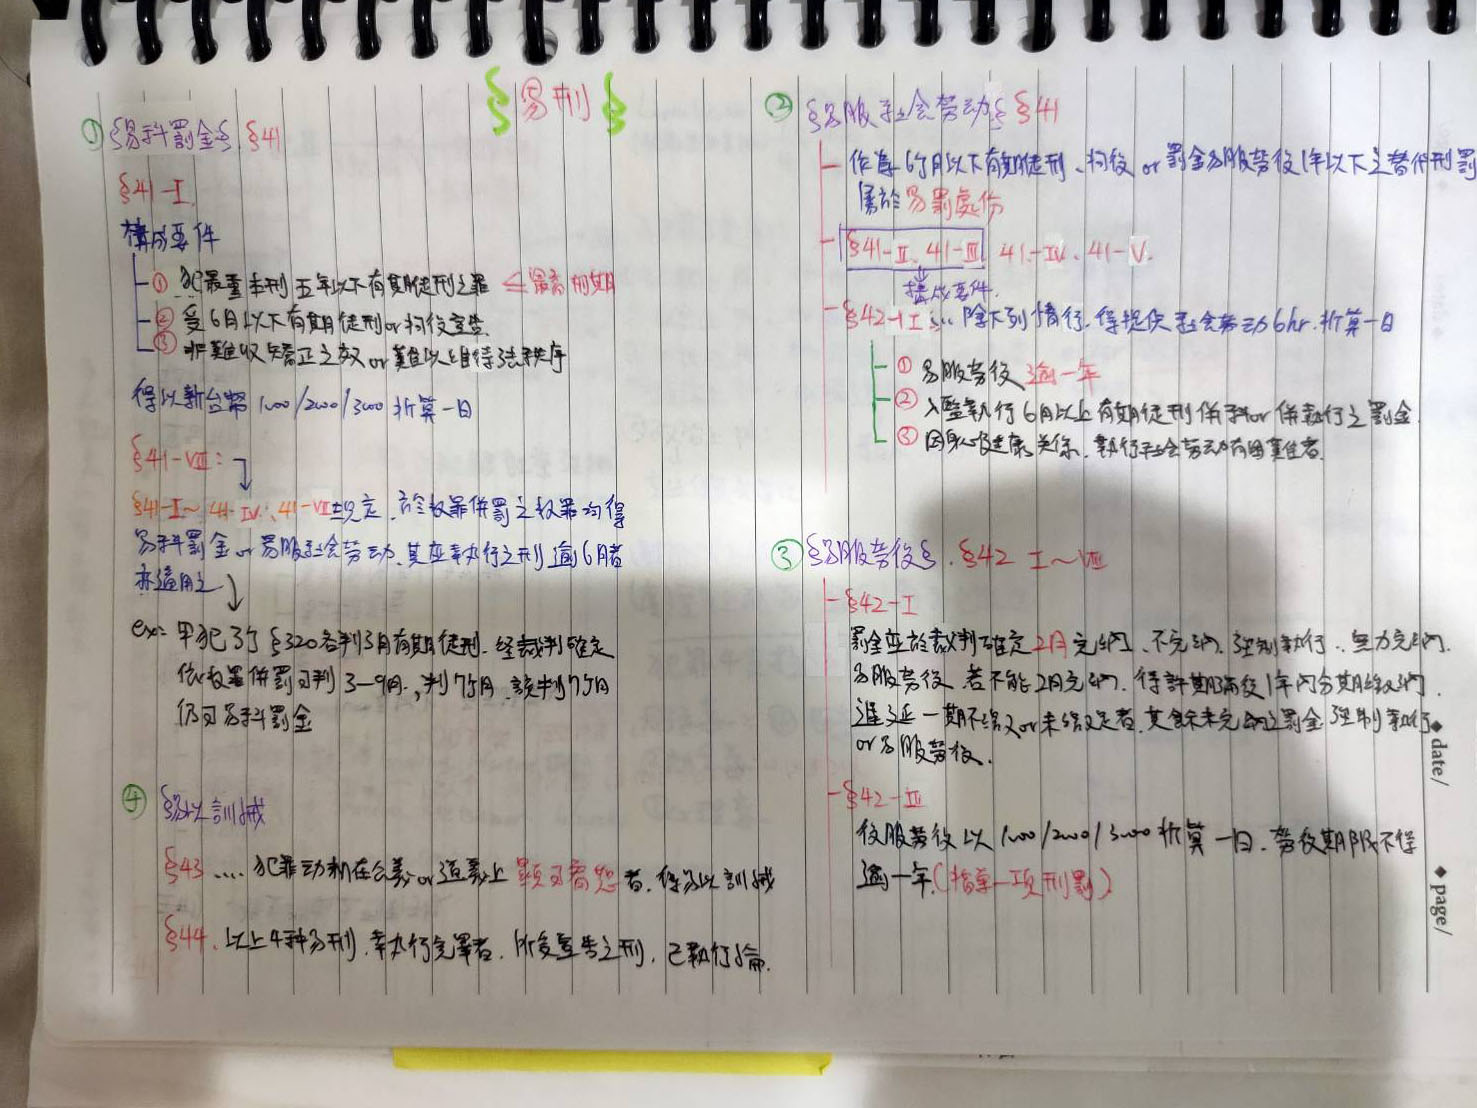 易刑
① 易科罰金 §41
§41-I
構成要件
① 犯最重本刑五年以下有期徒刑之罪 ⇐最高刑期
② 受6月以下有期徒刑or拘役宣告
③ 非難收矯正之效or難以維持法秩序
得以新台幣1000/2000/3000折算一日
§41-VIII:
§41-I~41-IV、41-VII規定,於数罪併罰之数罪均得
易科罰金or易服社会劳动,其应執行之刑逾6月者
亦適用之
ex: 甲犯了 §320各判3月有期徒刑,經裁判確定
依数罪併罰可判3-9月,判7个月,該判7个月
仍可易科罰金
④ 易以訓誡
§43.... 犯罪动机在公義or道義上顯可宥恕者,得易以訓誡
§44. 以上4种易刑,執行完畢者,所受宣告之刑,已執行論.
② 易服社会劳动 §41
作為6个月以下有期徒刑、拘役or罰金易服劳役1年以下之替代刑罰
屬於易罰處份
§41-II、41-III 41-IV、41-V.
構成要件.
§42-1 I... 除下列情行,得提供社会劳动6hr.折算一日
① 易服劳役逾一年
② 入監執行6月以上有期徒刑併科or併執行之罰金.
③ 因身心健康关係,執行社会劳动有困難者.
③ 易服劳役.§42 I~VIII
§42-I
罰金应於裁判確定2月完納、不完納,強制執行.無力完納.
易服劳役 若不能2月完納,得許期滿後1年內分期繳納.
遲延一期不繳or未繳足者,其余未完納之罰金強制執行
or易服劳役.
§42-III
役服劳役以1000/2000/3000折算一日.劳役期限不得
逾一年.(指單一項刑罰)
date/
page/